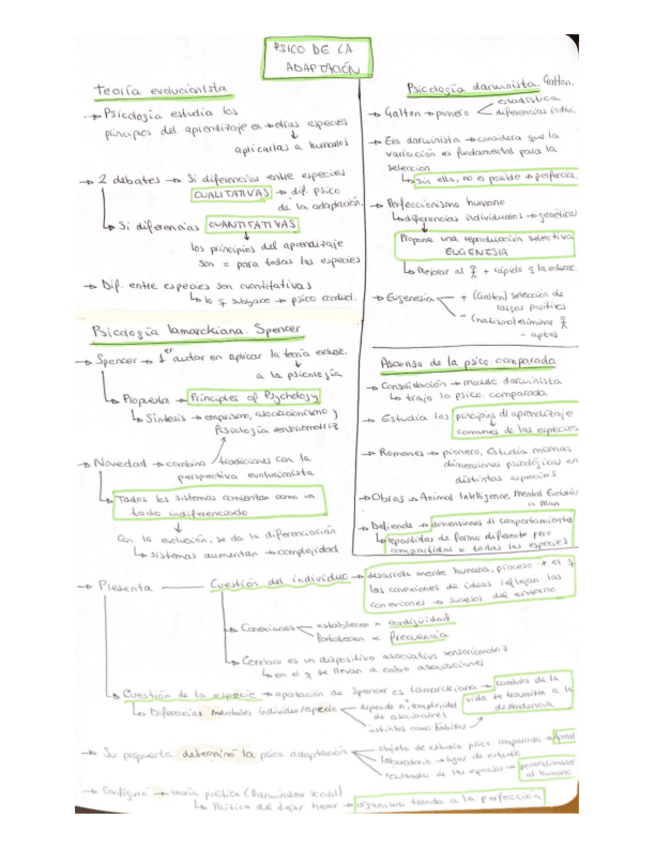 PSICO DE LA
ADAPTACIÓN
Teoría evolucionista
→ Psicología estudia los
principios del aprendizaje en → otras especies
aplicarlas a humanos
→ 2 debates → Si diferencias entre especies
CUALITATIVAS → dif. psico
de la adaptación.
Si diferencias CUANTITATIVAS
los principios del aprendizaje
son = para todas las especies
→ Dif. entre especies son cuantitativas
lo q subyace → psico conduc.
Psicología lamarckiana. Spencer
→ Spencer → 1er autor en aplicar la teoría evoluc.
a la psicología
Propuesta → Principles of Psychology
Síntesis → empirismo, asociacionismo y
Psicología sensoriomotriz
→ Novedad → combina tradiciones con la
perspectiva evolucionista
Todos los sistemas comienzan como un
todo indiferenciado
Con la evolución, se da la diferenciación
sistemas aumentan → complejidad
Psicología darwinista. Galton.
→ Galton → pionero estadística
diferencias indivi.
→ Era darwinista → considera que la
variación es fundamental para la
selección
Sin ella, no es posible →
→ Perfeccionismo humano
diferencias individuales → genética
Propone una reproducción selectiva
EUGENESIA
Mejorar al + rápido q la educac.
→ Eugenesia + (Galton) selección de
rasgos positivos
- eliminar
- aptos
Ascenso de la psico. comparada
→ Consolidación → modelo darwinista
trajo la psico. comparada
→ Estudia los principios d aprendizaje
comunes de las especies
→ Romanes → pionero, Estudia mismas
dimensiones psicológicas en
distintas especies
→ Obras → Animal Intelligence, Mental Evolution
in Man
→ Defiende → dimensiones d comportamiento
repartidas de forma diferente pero
compartidas x todas las especies
→ Presenta Cuestión del individuo → desarrollo mente humana, proceso x el q
las conexiones de ideas reflejan las
conexiones → sucesos del entorno
Conexiones establecen x contigüidad
fortalecen x frecuencia
Cerebro es un dispositivo asociativo sensoriomotriz
en el q se llevan a cabo asociaciones
Cuestión de la especie → aportación de Spencer es lamarckiana → cambios de la
vida se transmiten a la
descendencia
Diferencias mentales individuo/especie depende nº, complejidad
de asociaciones
instintos como hábitos
→ Su propuesta determinó la psico. adaptación objeto de estudio psico. comparada →
laboratorio → lugar de estudio
resultados de las especies → generalizables
al humano
→ Configuró → teoría política (Darwinismo social)
Política del dejar hacer → organismo tiende a la perfección